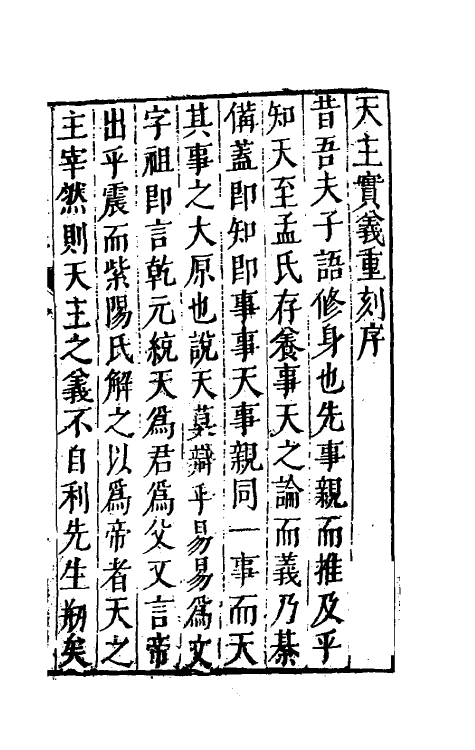 天主實義重刻序
昔吾夫子語修身也先事親而推及乎
知天至孟氏存養事天之論而義乃綦
備蓋即知即事事天事親同一事而天
其事之大原也說天莫辯乎易易為文
字祖即言乾元統天為君為父又言帝
出乎震而紫陽氏解之以為帝者天之
主宰然則天主之義不自利先生剏矣